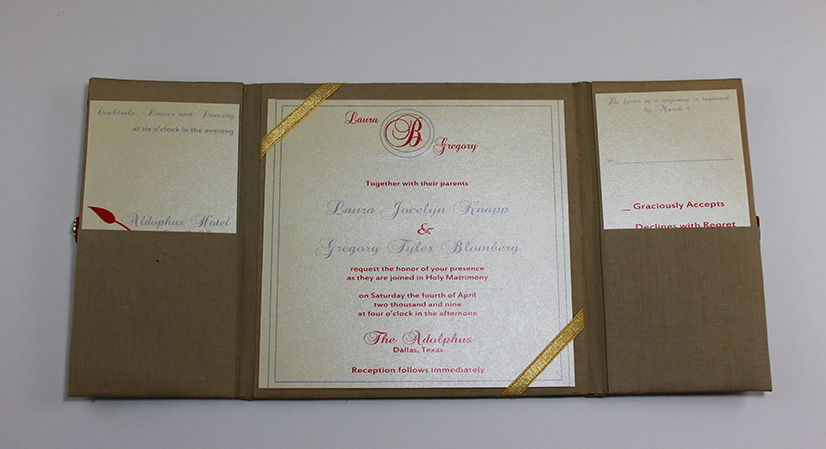 Cocktails, Dinner and Dancing
at six o'clock in the evening
Aldophus Hotel
Laura
B
Gregory
Together with their parents
Laura Jocelyn Knapp
&
Gregory Tyler Blomberg
request the honor of your presence
as they are joined in Holy Matrimony
on Saturday the fourth of April
two thousand and nine
at four o'clock in the afternoon
The Adolphus
Dallas, Texas
Reception follows immediately
The favor of a response is required
by March
m
Graciously Accepts
Declines with Regret